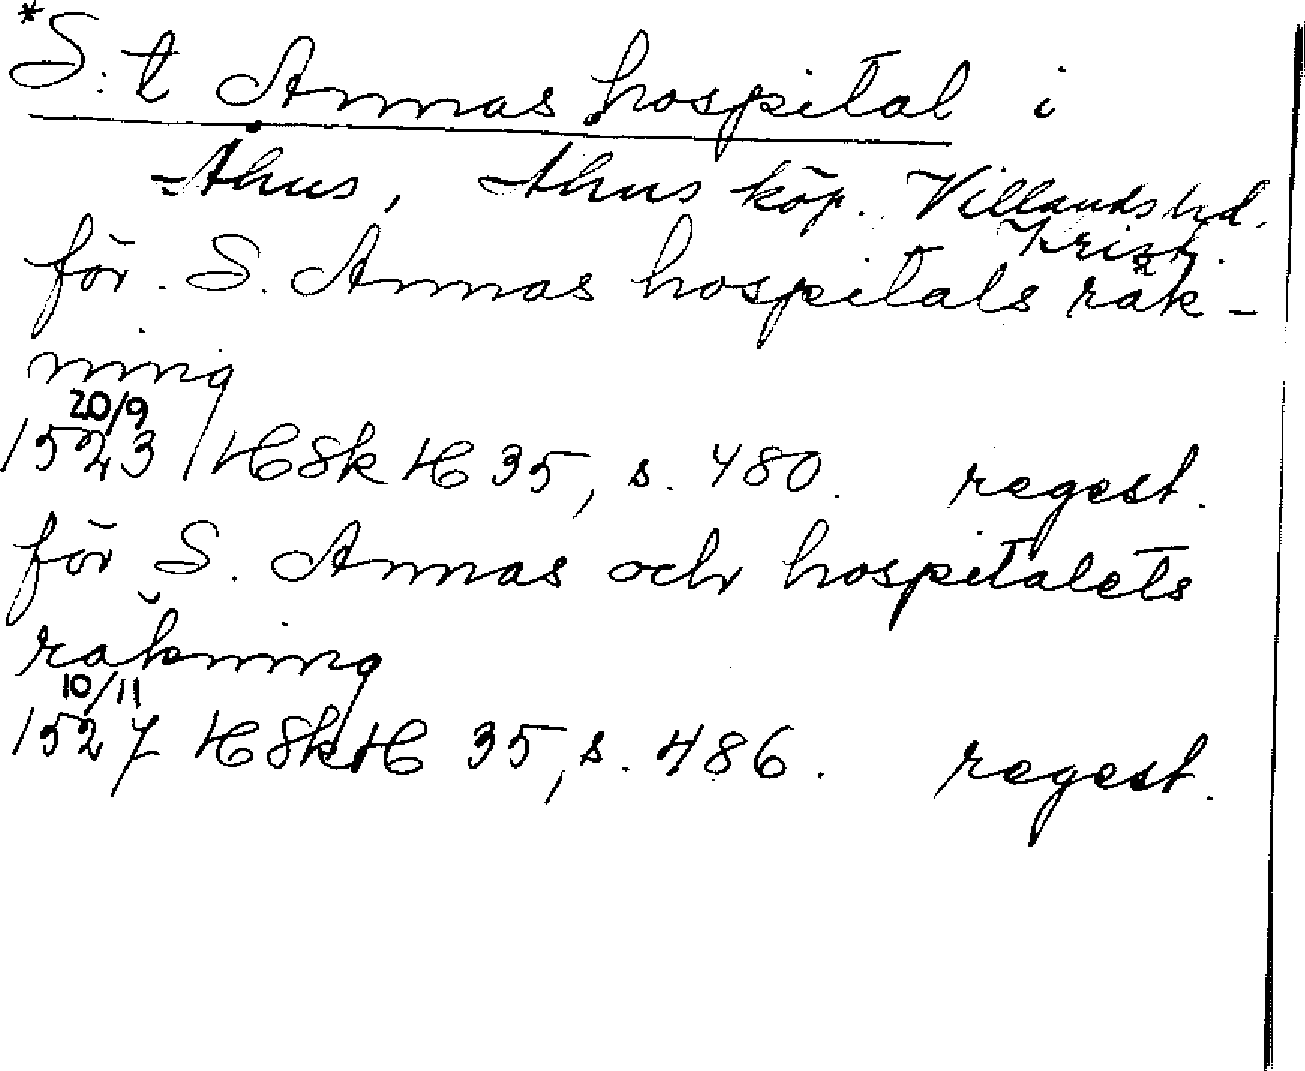 *S:t Annas hospital i
Åhus, Åhus köp. Villands hd.
Krist.
för S. Annas hospitals räk-
ning
20/9
1523 HSkH 35, s. 480. regest.
för S. Annas och hospitalets
räkning
10/11
1527 HSkH 35, s. 486. regest.